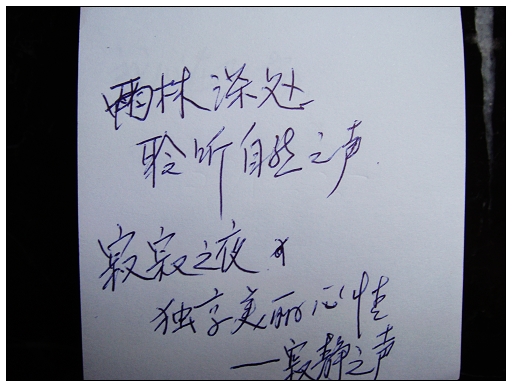 雨林深处
聆听自然之声
寂寂之夜
独享美丽心情
—寂静之声